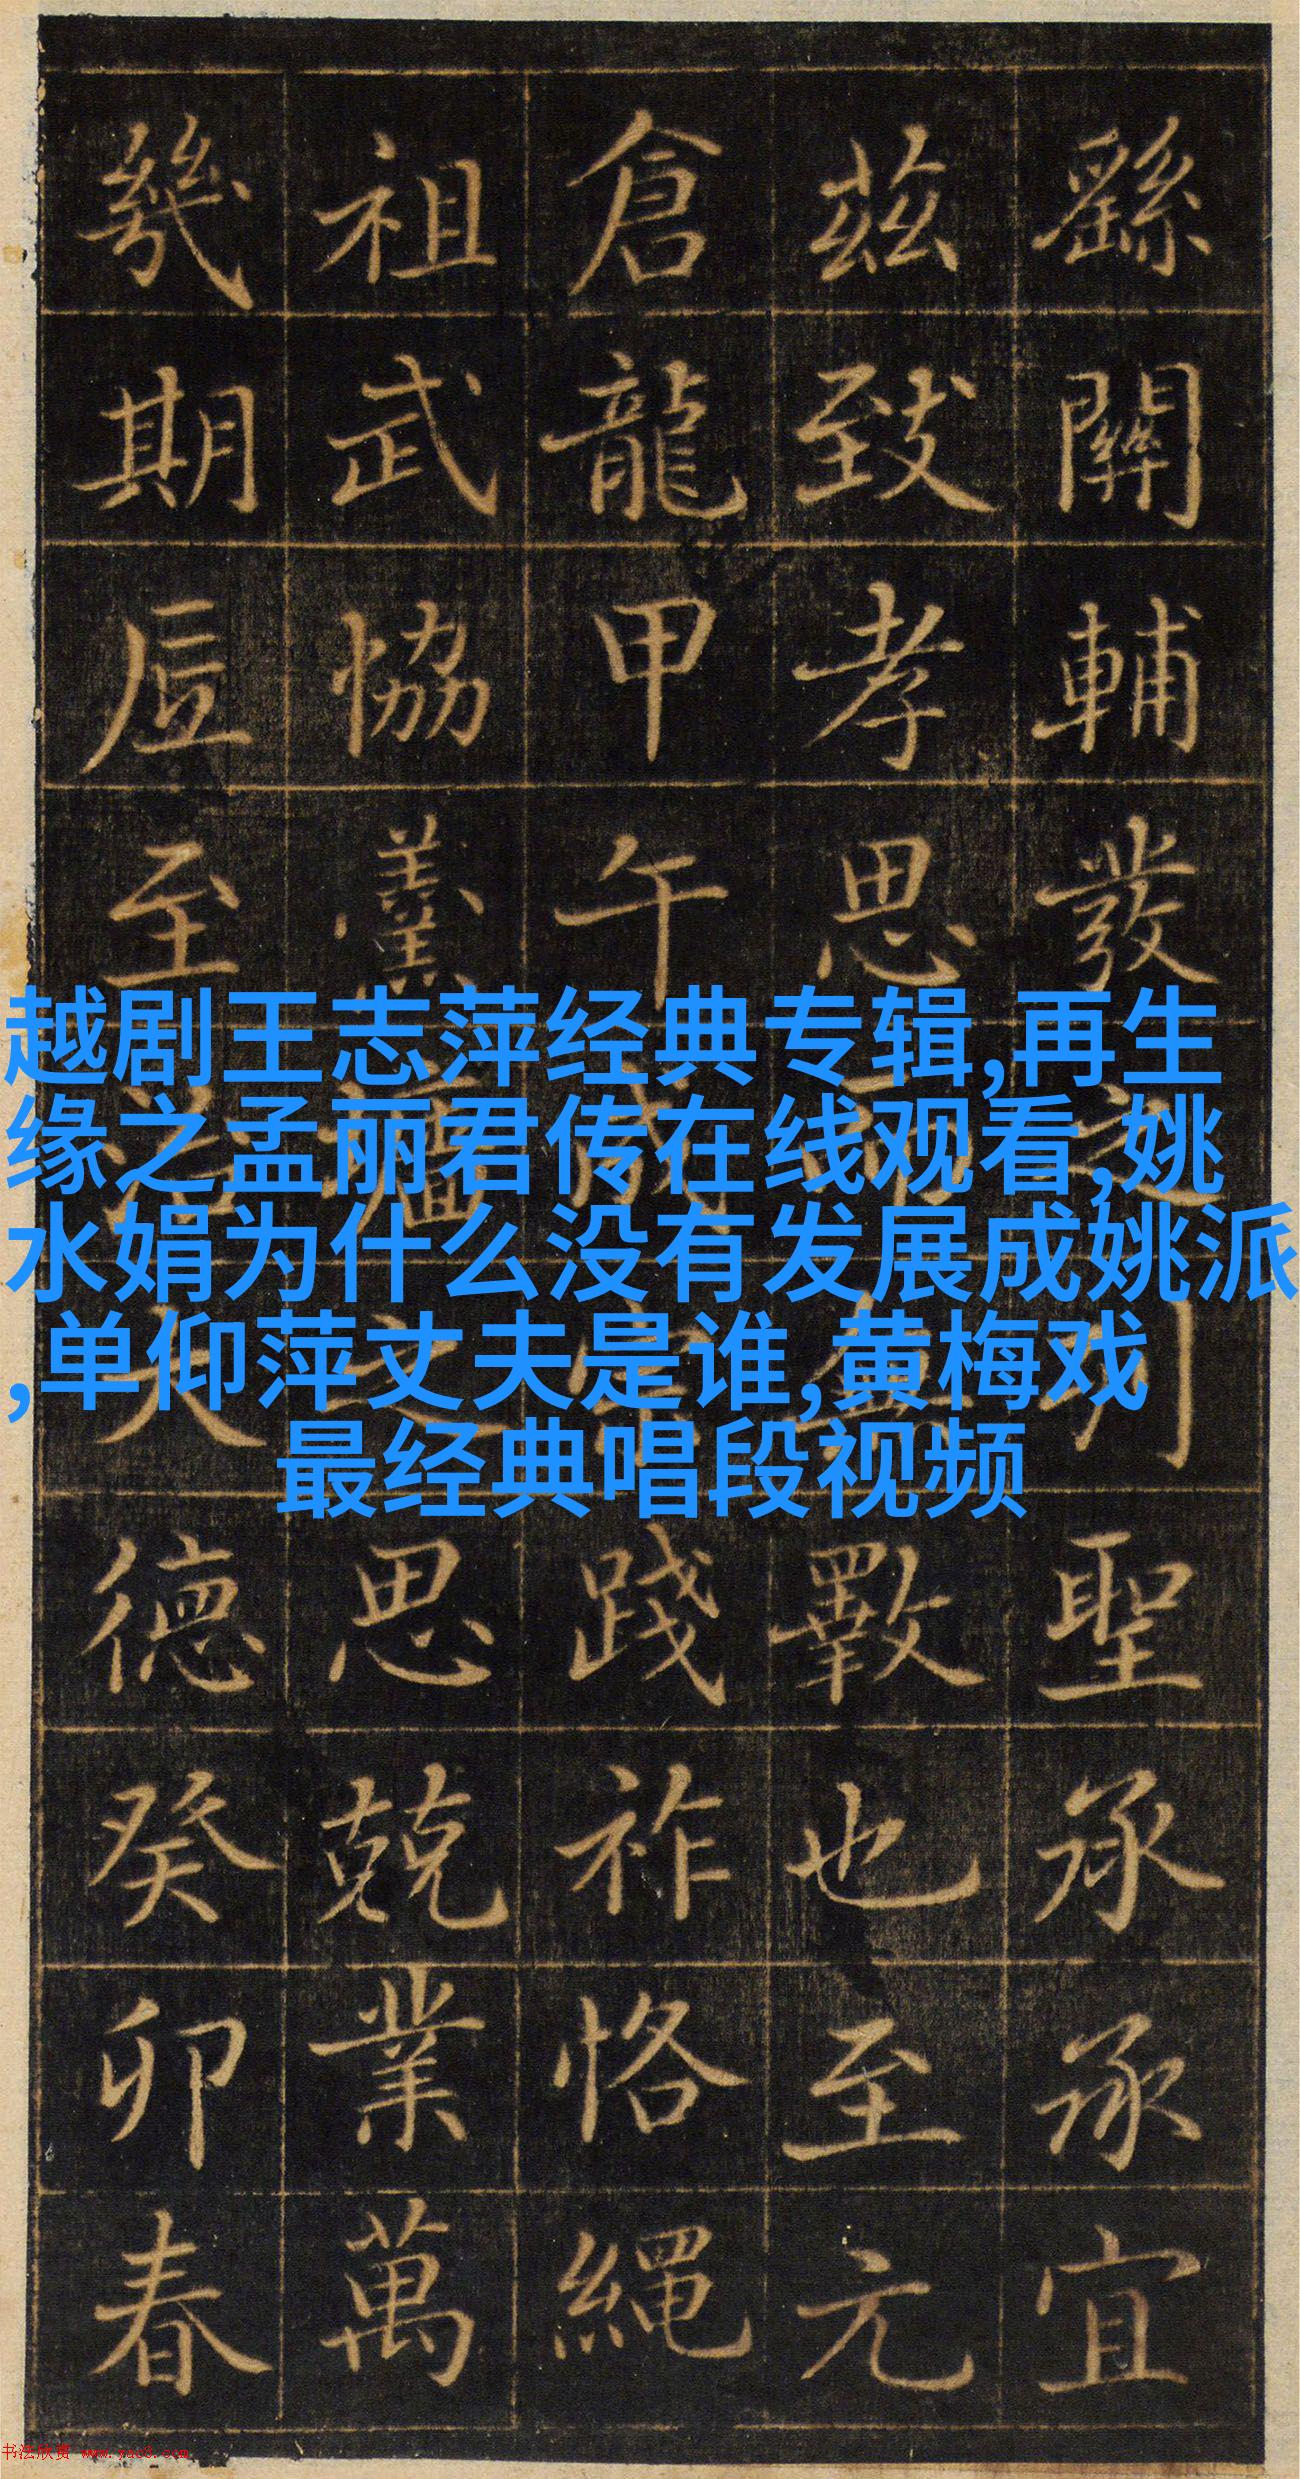 繇關輔發之列聖承承宜
茲致孝思而無斁也至元
倉龍甲午成宗踐祚恪繩
祖武協羹墻之思兢業萬
幾期至治大德癸卯春
越剧王志萍经典专辑,再生
缘之孟丽君传在线观看,姚
水娟为什么没有发展成姚派
,单仰萍丈夫是谁,黄梅戏
最经典唱段视频
书法欣赏 www.yac8.com